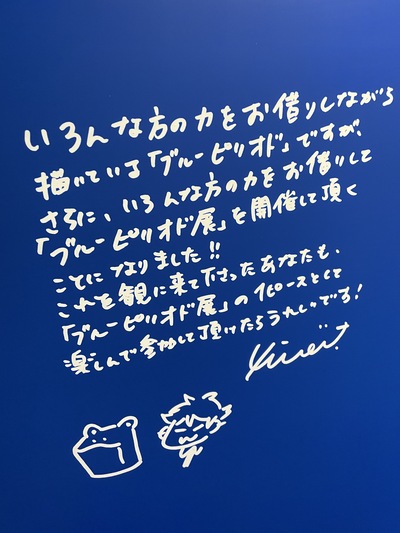 いろんな方の力をお借りしながら
描いている「ブルーピリオド」ですが、
さらに、いろんな方の力をお借りして
「ブルーピリオド展」を開催して頂く
ことになりました!!
これを観に来て下さったあなたも、
「ブルーピリオド展」の1ピースとして
楽しんで参加して頂けたらうれしいです!